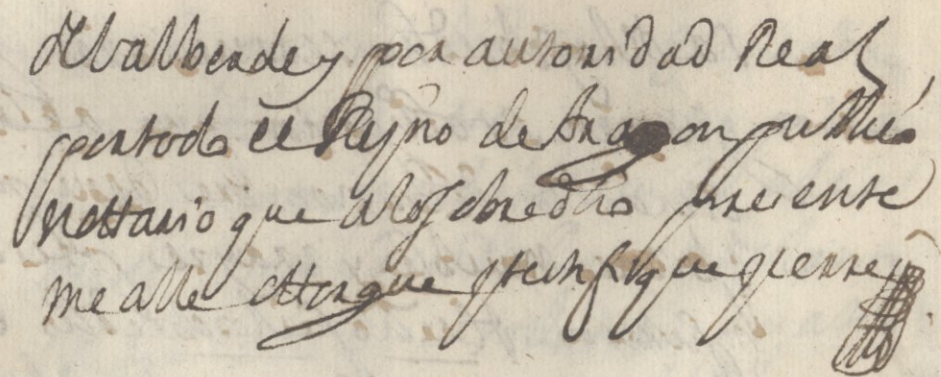 de Valberde y por autoridad Real
por todo el Reyno de Aragon publico
nottario que a lo sobredho presente
me alle ottorgue